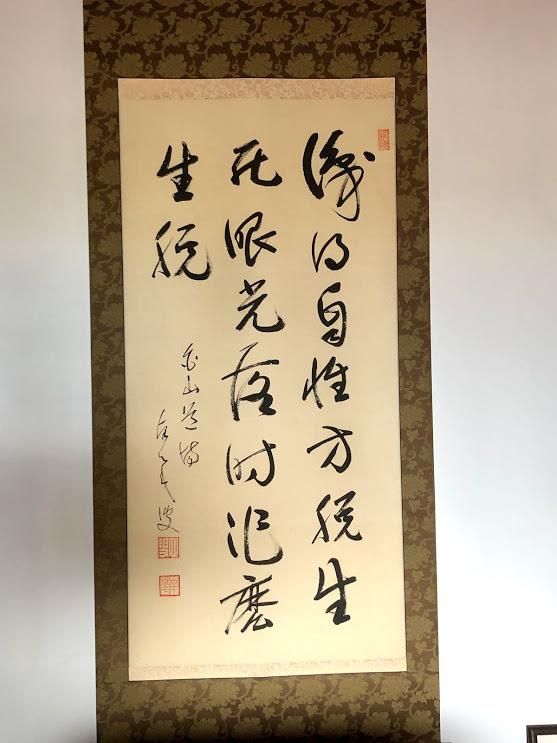 識得自性方脱生
死眼光落時作麼
生脱